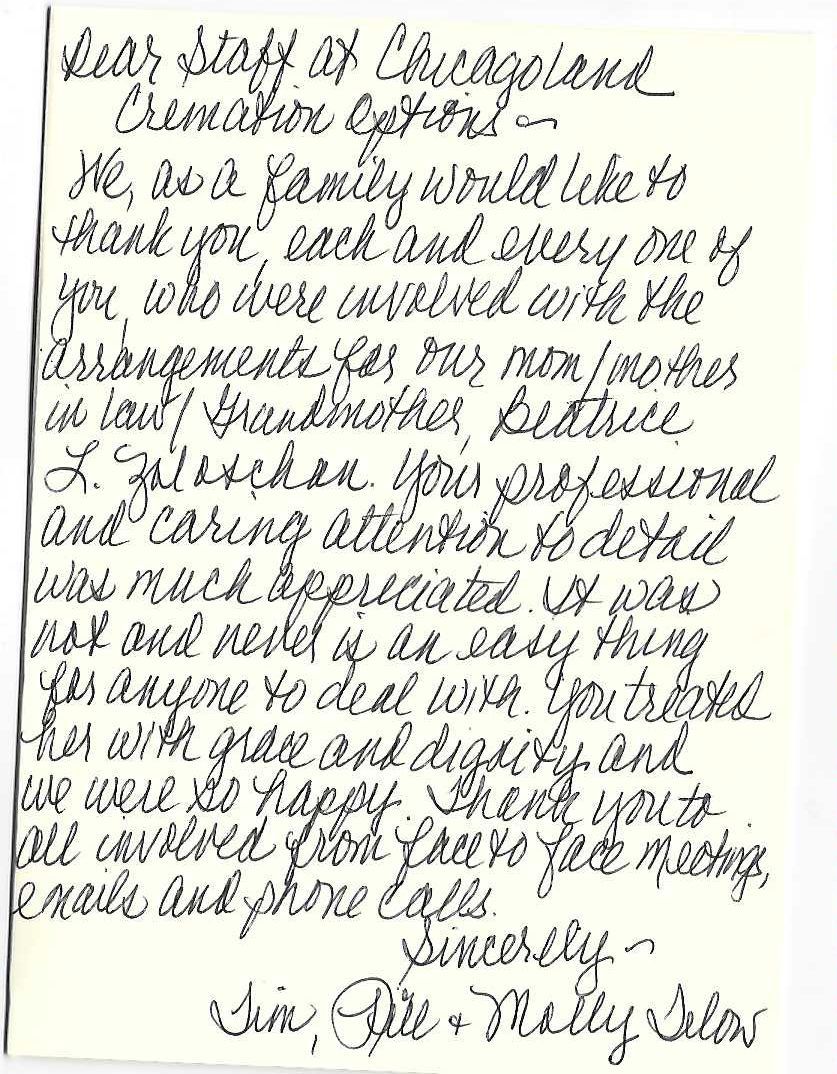 Dear Staff at Chicagoland
Cremation Options ~
We, as a family would like to
thank you, each and every one of
you, who were involved with the
arrangements for our mom/mother
in law/Grandmother, Beatrice
L. Zoloschan. Your professional
and caring attention to detail
was much appreciated. It was
not and never is an easy thing
for anyone to deal with. You treated
her with grace and dignity and
we were so happy. Thank you to
all involved from face to face meetings,
emails and phone calls.
Sincerely ~
Jim, + Molly